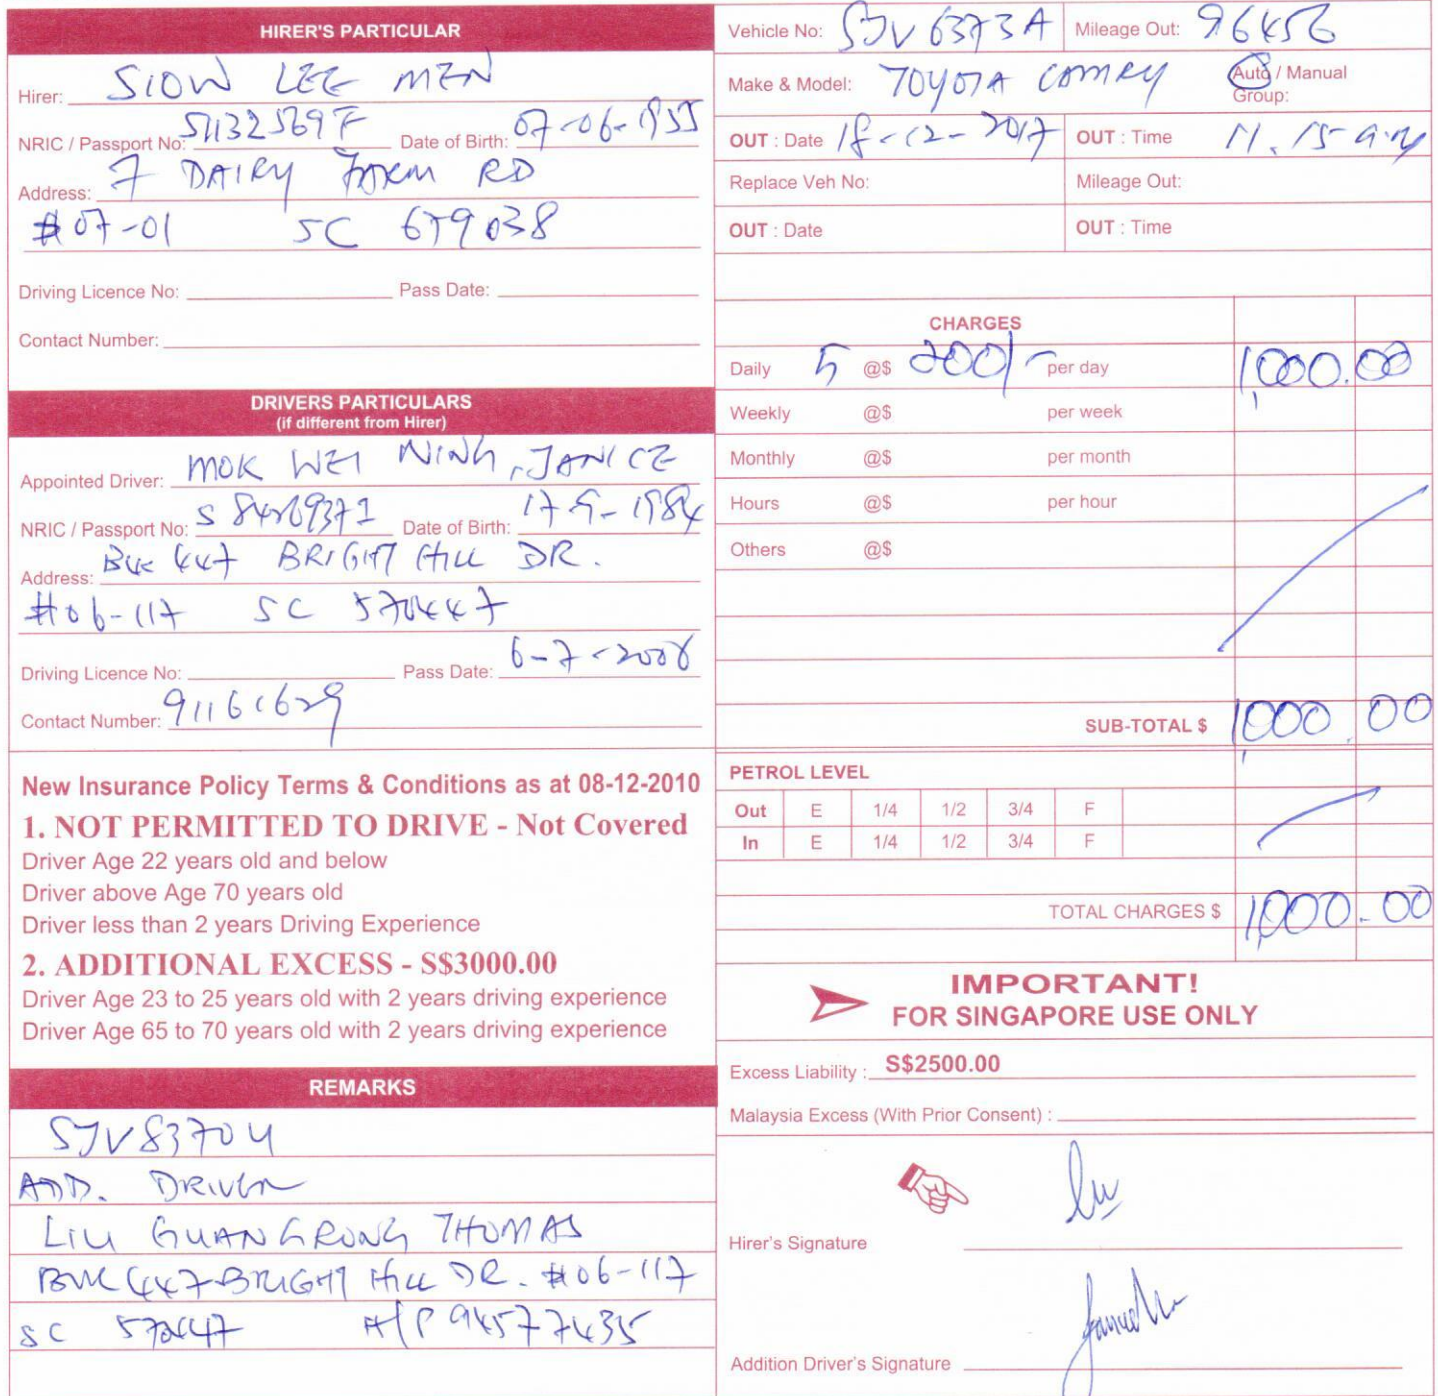 HIRER'S PARTICULAR
Hirer: SIOW LEE MEN
NRIC / Passport No: S1132569F Date of Birth: 07-06-1955
Address: 7 DAIRY FARM RD
#07-01 SC 679038
Driving Licence No: Pass Date:
Contact Number:
DRIVERS PARTICULARS
(if different from Hirer)
Appointed Driver: MOK WEI NING, JANICE
NRIC / Passport No: Date of Birth: 17-9-1984
Address: BLK 447 BRIGHT HILL DR.
#06-117 SC 570447
Driving Licence No: Pass Date: 6-7-2006
Contact Number: 91161629
New Insurance Policy Terms & Conditions as at 08-12-2010
1. NOT PERMITTED TO DRIVE - Not Covered
Driver Age 22 years old and below
Driver above Age 70 years old
Driver less than 2 years Driving Experience
2. ADDITIONAL EXCESS - S$3000.00
Driver Age 23 to 25 years old with 2 years driving experience
Driver Age 65 to 70 years old with 2 years driving experience
REMARKS
SJV8370U
ADD. DRIVER
LIU GUANGRONG THOMAS
BLK 447 BRIGHT HILL DR. #06-117
SC 570447 H/P 94577435
Vehicle No: SJV 6373A Mileage Out: 96456
Make & Model: TOYOTA CAMRY Auto / Manual
Group:
OUT : Date 18-12-2017 OUT : Time 11.15 a.m
Replace Veh No: Mileage Out:
OUT : Date OUT : Time
CHARGES
Daily 5 @$ 200/- per day 1,000.00
Weekly @$ per week
Monthly @$ per month
Hours @$ per hour
Others @$
SUB-TOTAL $ 1,000.00
PETROL LEVEL
Out E 1/4 1/2 3/4 F
In E 1/4 1/2 3/4 F
TOTAL CHARGES $ 1,000.00
IMPORTANT!
FOR SINGAPORE USE ONLY
Excess Liability : S$2500.00
Malaysia Excess (With Prior Consent) :
Hirer's Signature
Addition Driver's Signature